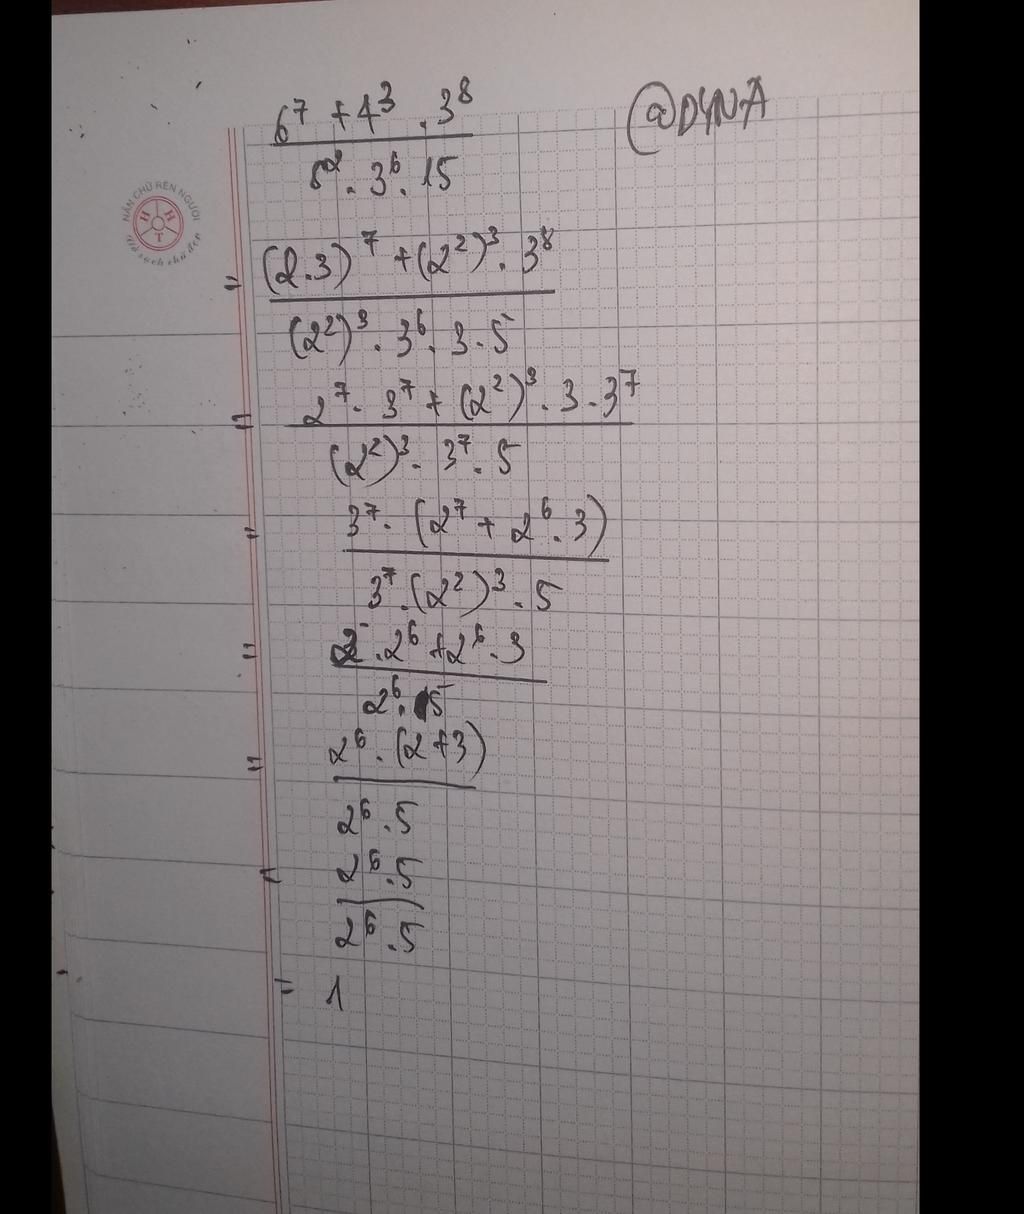 6⁷ + 4³ . 3⁸
@DYNA
8² . 3⁶ . 15
NẮN CHỮ RÈN NGƯỜI
H H T
Giữ sạch chữ đẹp
= (2.3)⁷ + (2²)³ . 3⁸
(2²)³ . 3⁶ . 3 . 5
= 2⁷ . 3⁷ + (2²)³ . 3 . 3⁷
(2²)³ . 3⁷ . 5
= 3⁷ . (2⁷ + 2⁶ . 3)
3⁷ . (2²)³ . 5
= 2 . 2⁶ + 2⁶ . 3
2⁶ . 5
= 2⁶ . (2 + 3)
2⁶ . 5
= 2⁶ . 5
2⁶ . 5
= 1